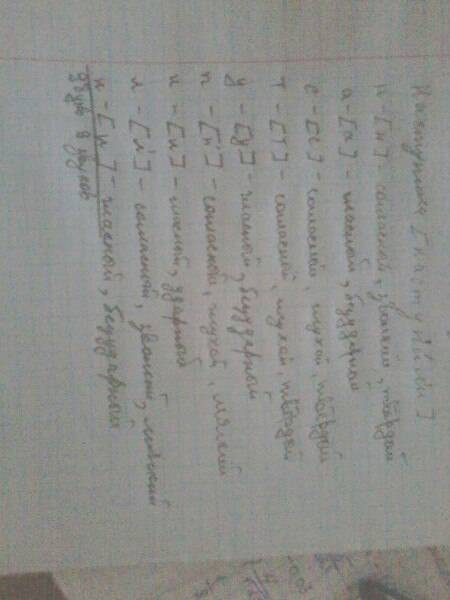 Наступили [наступ'ил'и]
н - [н] - согласный, звонкий, твёрдый
а - [а] - гласный, безударный
с - [с] - согласный, глухой, твёрдый
т - [т] - согласный, глухой, твёрдый
у - [у] - гласный, безударный
п - [п'] - согласный, глухой, мягкий
и - [и] - гласный, ударный
л - [л'] - согласный, звонкий, мягкий
и - [и] - гласный, безударный
9 букв 9 звуков